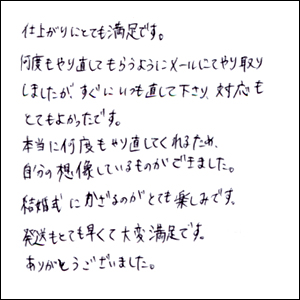 仕上がりにとても満足です。
何度もやり直してもらうようにメールにてやり取り
しましたが、すぐにいつも直して下さり、対応も
とてもよかったです。
本当に何度もやり直してくれるため、
自分の想像しているものができました。
結婚式にかざるのがとても楽しみです。
発送もとても早くて大変満足です。
ありがとうございました。